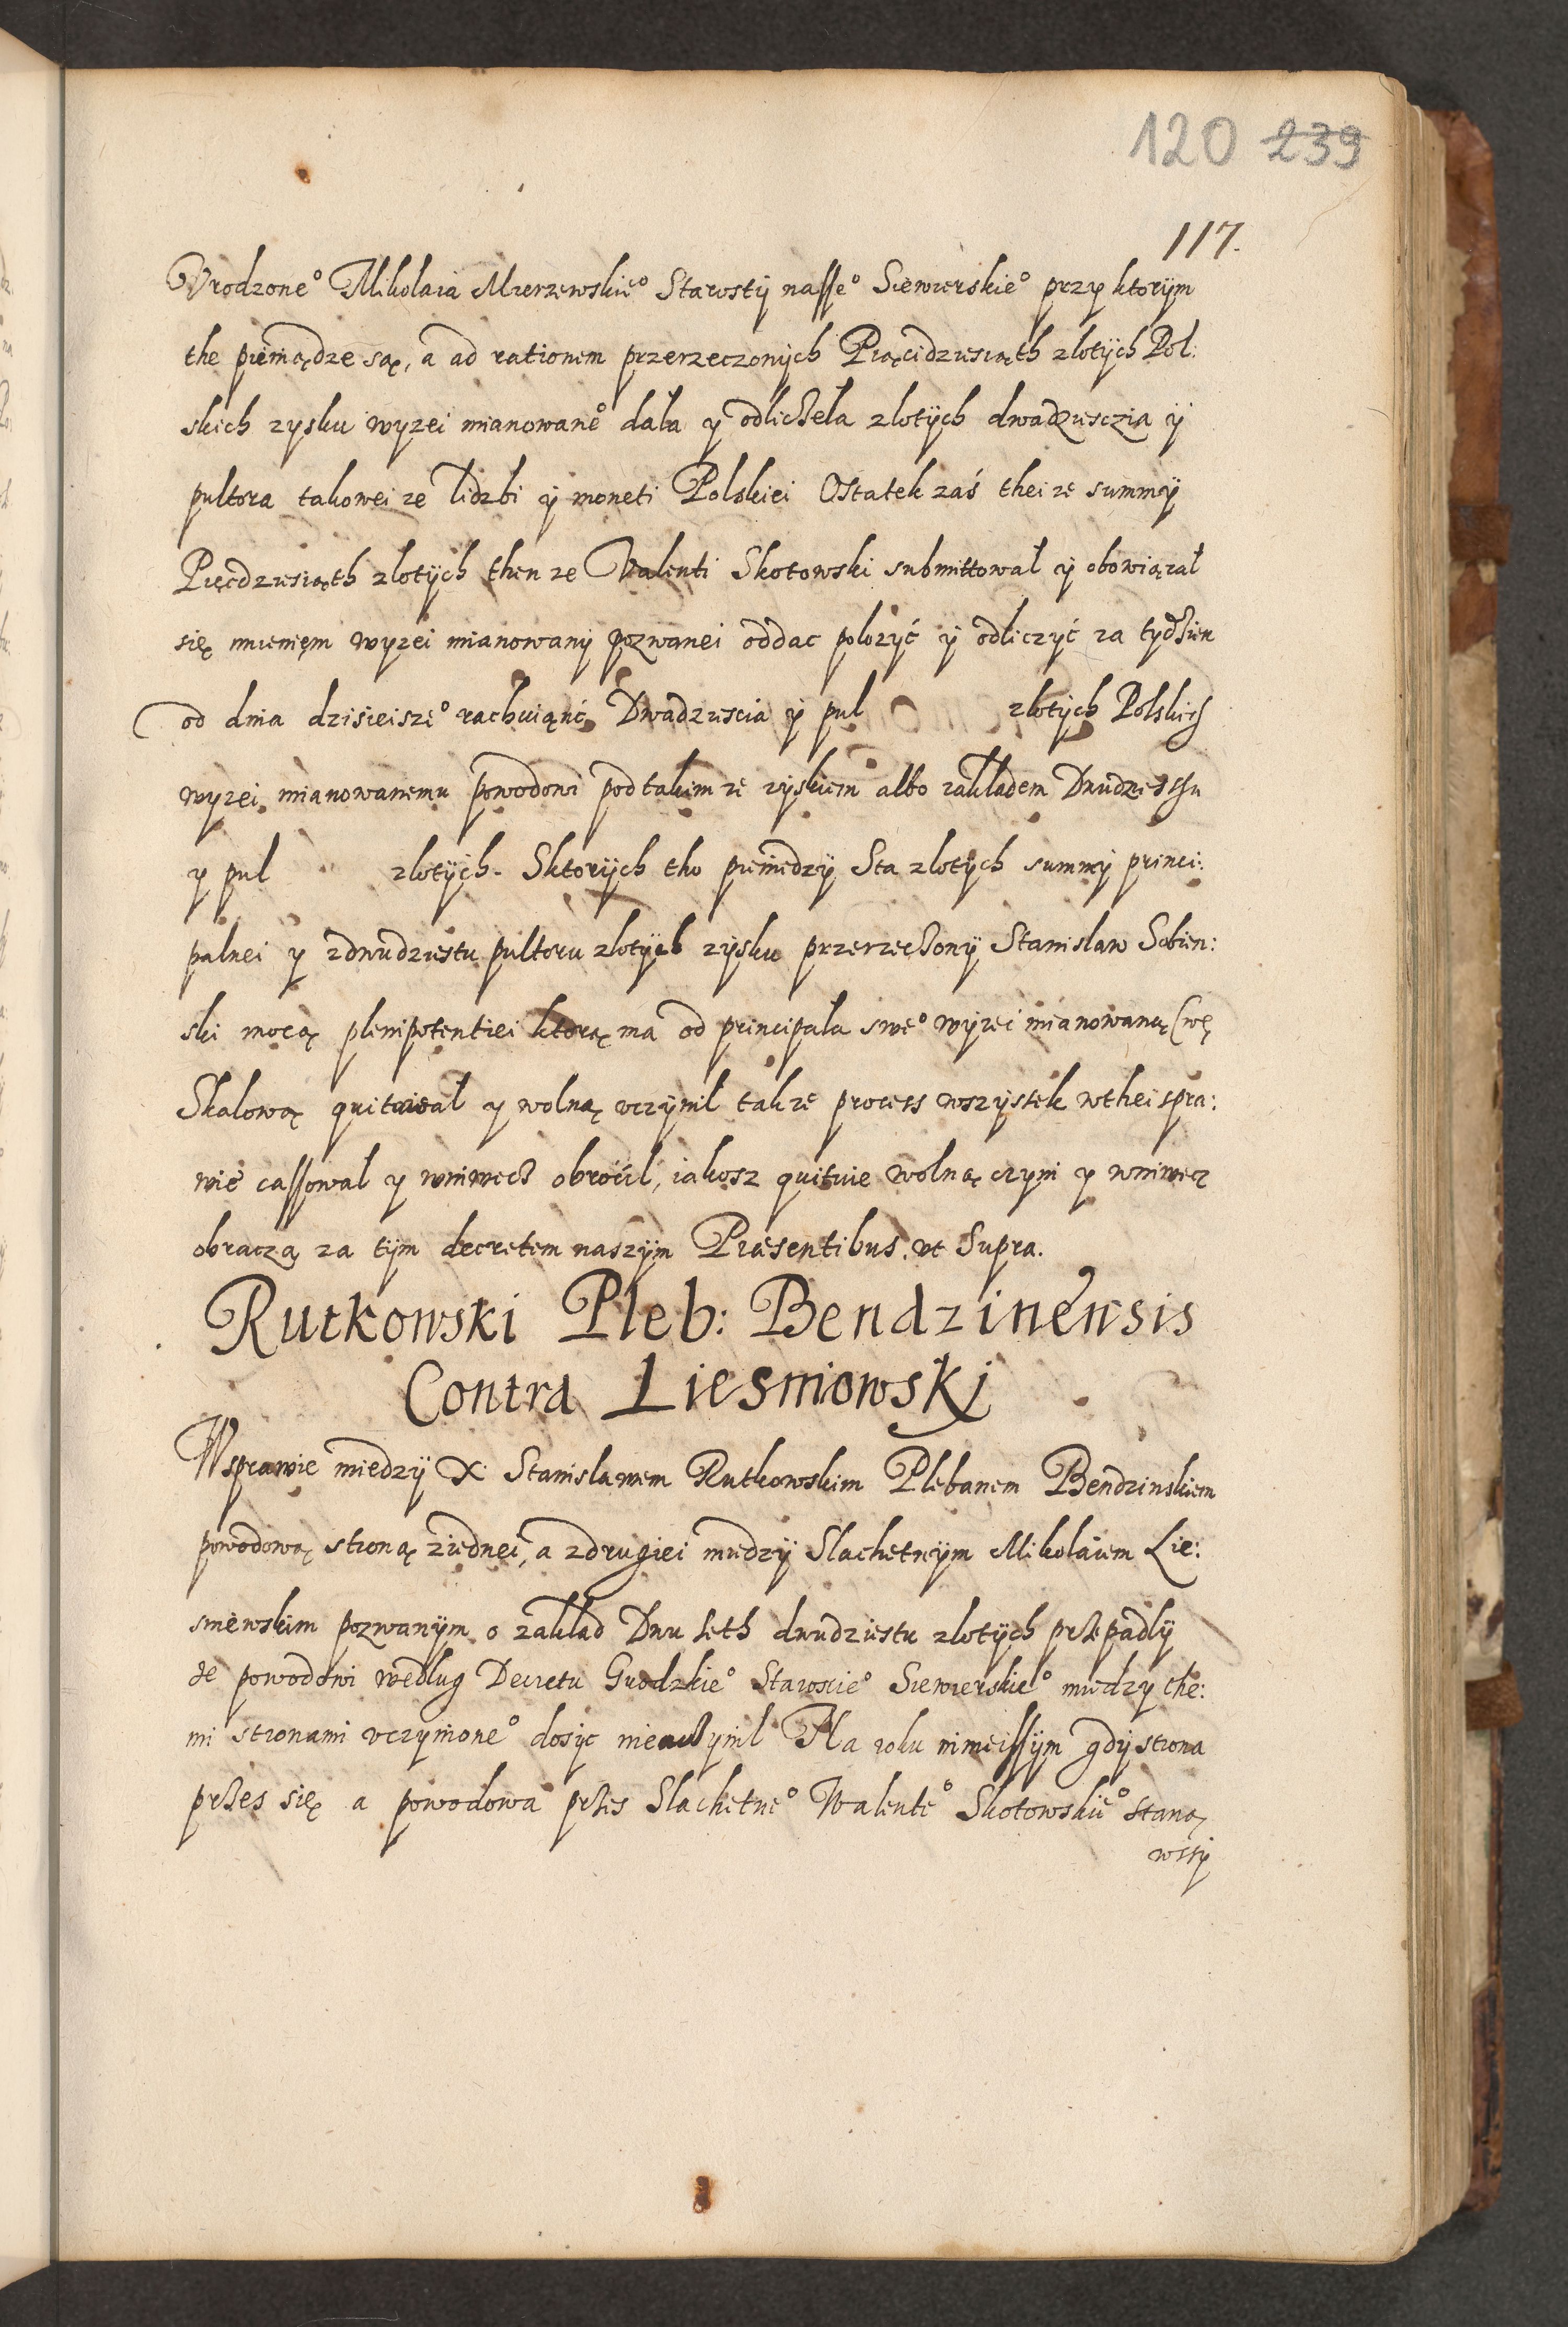 120 239
117.
Vrodzone° Mikolaia Mierzewskie° Starosty nasse° Siewierskie° przy ktorÿm
the pieniądze są, a ad rationem przerzeczonÿch Pięcidziesiąth zlotÿch Pol:
skich zysku wyzei mianowane° dala y odliczela zlotÿch dwadziesczia ÿ
pultora takowei ze lidzbi ÿ moneti Polskiei Ostatek zaś thei ze summÿ
Pięcdziesiąth zlotÿch then ze Valenti Skotowski submittowal ÿ obowiązal
się imieniem wyzei mianowanÿ pozwanei oddac polozyć ÿ odliczyć za tydzien
od dnia dzisieisze° rachuiąnc Dwadziescia ÿ pul zlotÿch Polskich
wyzei mianowanemu powodowi pod takim ze zyskiem albo zakladem Dwudziesthu
y pul zlotÿch. Sktorÿch tho pieniedzÿ Sta zlotÿch summÿ princi:
palnei y zdwudziestu pultoru zlotÿch zÿsku przerzeczonÿ Stanislaw Sobien:
ski mocą plenipotentiei ktorą ma od principala swe° wyzei mianowaną
Skalową quitowal y wolną vczÿnil takze process wszystek wthei spra:
wie cassowal y wniwecz obrócil, iakosz quituie wolną czyni y wniwecz
obracza za tÿm decretem naszÿm Præsentibus. vt Supra.
Rutkowski Pleb: Bendzinensis
Contra Liesniowski
Wsprawie miedzÿ X. Stanislawem Rutkowskim Plebanem Bendzinskiem
powodową stroną ziednei, a zdrugiei miedzÿ Slachetnÿm Mikolaiem Lie:
sniewskim pozwanÿm o zaklad Dwu seth dwudziestu zlotÿch przepadlÿ
ze powodowi wedlug Decretu Grodzkie° Staroscie° Siewierskie° miedzy the:
mi stronami vczynione° dosÿc nieuczynil Na roku ninieissÿm gdÿ strona
przes się a powodowa przes Slachetne° Walente° Skotowskie° staną
wssÿ